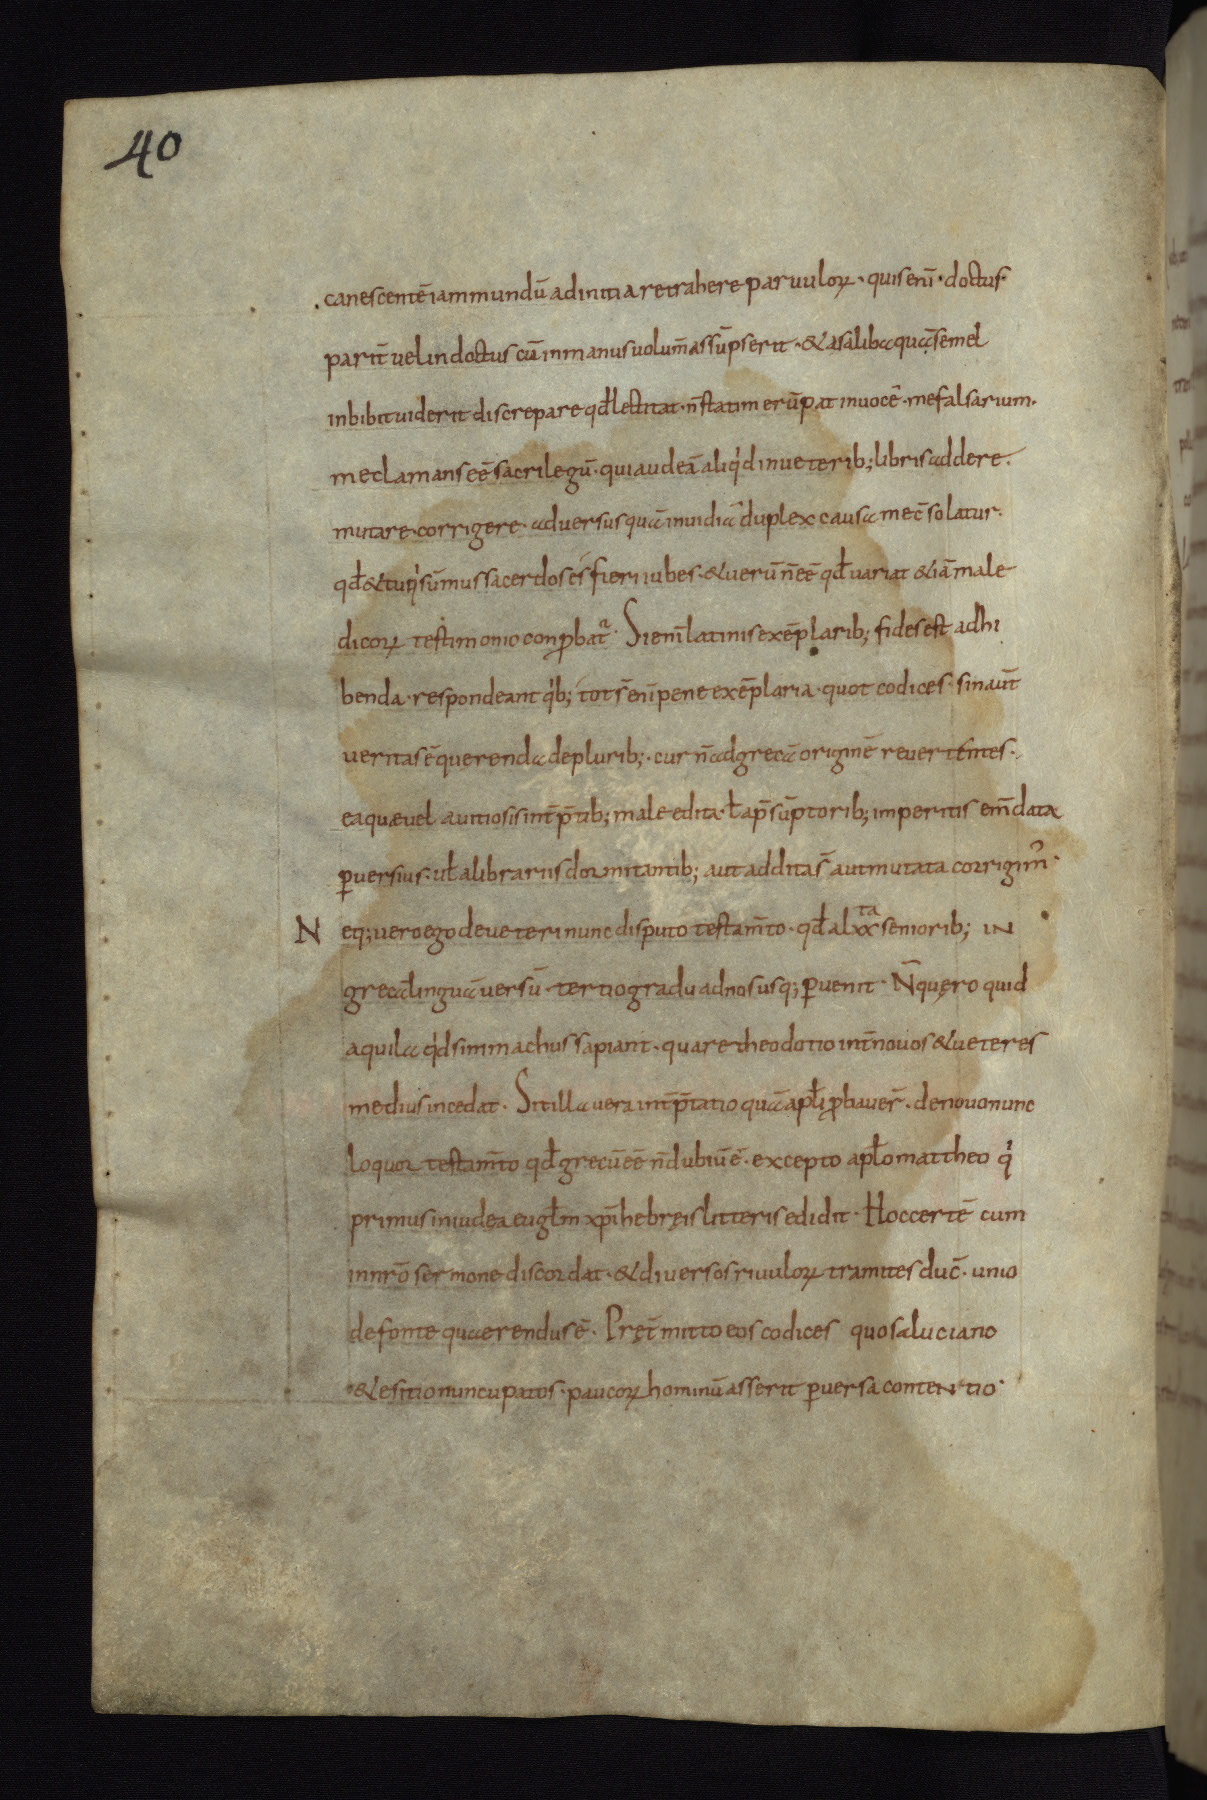 40
canescentē iam mundū ad initia retrahere parvulorꝝ · quis enī · doctus
parit̄ vel indoctus cū in manus volum̄ assūpserit · & a saliba quā semel
inbibit viderit discrepare qđ lectitat · n̄ statim erūpat in vocē · me falsarium ·
me clamans eē sacrilegū · qui audeā aliqͥd in veterib; libris addere ·
mutare · corrigere · adversus quā invidiā duplex causa me c̄solatur ·
qđ & tu qͥ sūmus sacerdos es fieri iubes · & verū n̄ eē qđ variat & iā male
dicorꝝ testimonio conꝓbatᷣ · Si enī latinis exēplarib; fides est adhi
benda · respondeant qͥb; tot s̄ enī pene exēplaria · quot codices · sin aut̄
veritas ē querenda de plurib; · cur n̄ ad grecā originē revertentes ·
ea quæ vel a vitiosis int̄p̄tib; male edita · ł a p̄sūptoribus; imperitis em̄data
ꝑversius · uł a librariis dormitantib; aut addita s̄ aut mutata corrigim᷒ ·
Neq; vero ego de veteri nunc disputo testam̄to · qđ a lxxta seniorib; in
grecā linguā versū · tertio gradu ad nos usq; ꝑvenit · N̄ quęro quid
aquila qͥd simmachus sapiant · quare theodotio int̄ novos & veteres
medius incedat · Sit illa vera int̄p̄tatio quā apłi ꝓbaver̄ · de novo nunc
loquor testam̄to qđ grecū eē n̄ dubiū ē · excepto apło mattheo qͥ
primus in iudea eugłm xp̄i hebręis litteris edidit · Hoc certē cum
in nr̄o sermone discordat · & diversos rivulorꝝ tramites duc̄ · unio
de fonte quaerendus ē · Pręt̄mitto eos codices quos a luciano
& esitio nuncupatos · paucorꝝ hominū asserit ꝑversa contentio ·